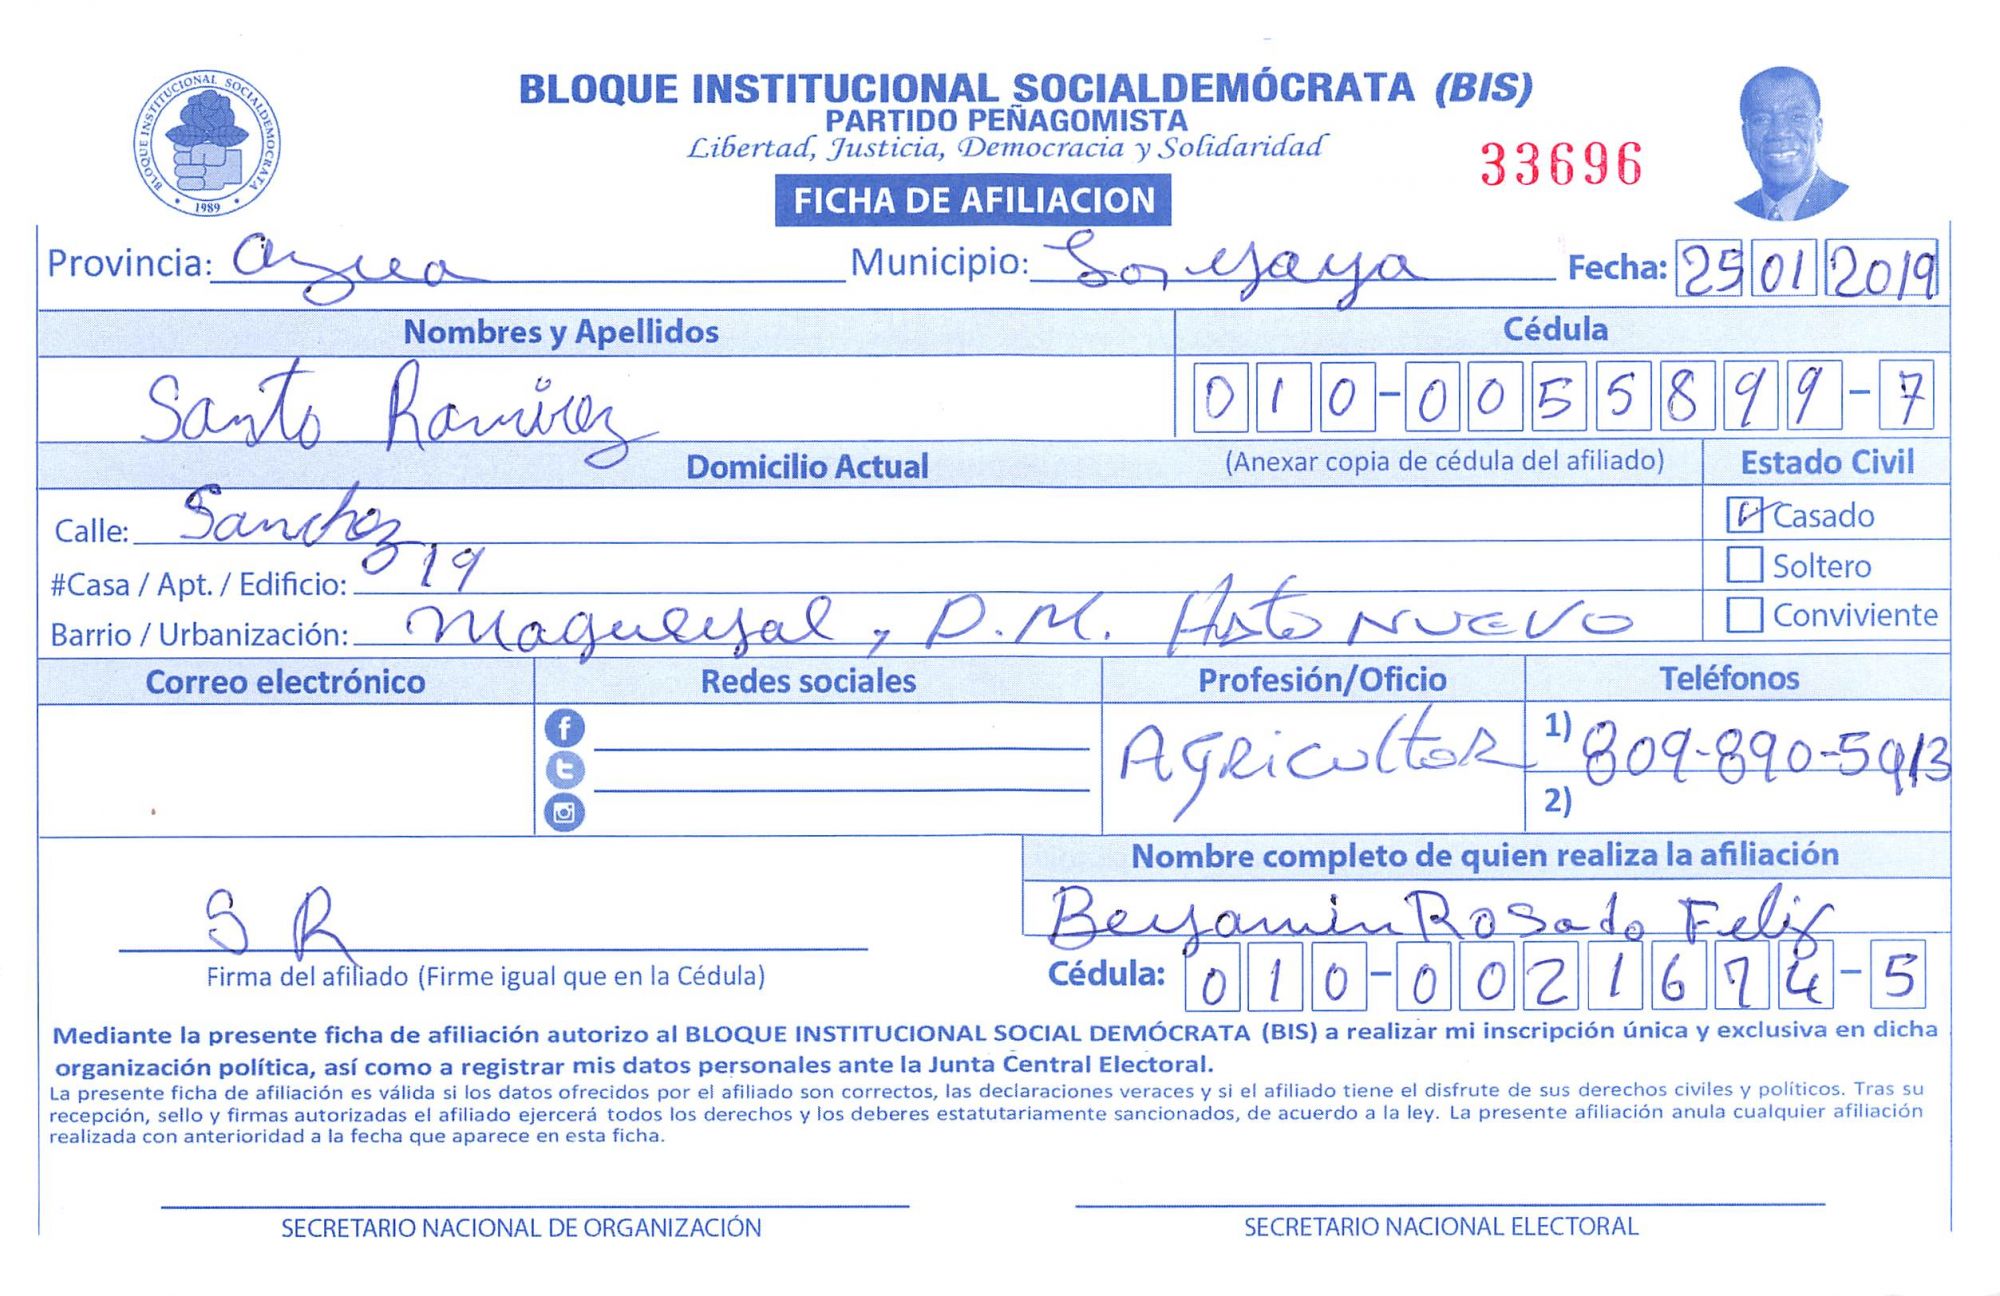 BLOQUE INSTITUCIONAL SOCIALDEMÓCRATA (BIS)
PARTIDO PEÑAGOMISTA
Libertad, Justicia, Democracia y Solidaridad
33696
FICHA DE AFILIACION
BLOQUE INSTITUCIONAL SOCIALDEMOCRATA
1989
Provincia: Azua Municipio: Fecha: 25 01 2019
Nombres y Apellidos Cédula
Santo Ramirez 010-0055899-7
Domicilio Actual (Anexar copia de cédula del afiliado) Estado Civil
Calle: Sanchez Casado
#Casa / Apt. / Edificio: 19 Soltero
Barrio / Urbanización: Magueyal, D.M. NUEVO Conviviente
Correo electrónico Redes sociales Profesión/Oficio Teléfonos
AGRicultoR 1) 809-890-5913
2)
Nombre completo de quien realiza la afiliación
S R Benjamin Rosado Feliz
Firma del afiliado (Firme igual que en la Cédula) Cédula: 010-0021674-5
Mediante la presente ficha de afiliación autorizo al BLOQUE INSTITUCIONAL SOCIAL DEMÓCRATA (BIS) a realizar mi inscripción única y exclusiva en dicha
organización política, así como a registrar mis datos personales ante la Junta Central Electoral.
La presente ficha de afiliación es válida si los datos ofrecidos por el afiliado son correctos, las declaraciones veraces y si el afiliado tiene el disfrute de sus derechos civiles y políticos. Tras su
recepción, sello y firmas autorizadas el afiliado ejercerá todos los derechos y los deberes estatutariamente sancionados, de acuerdo a la ley. La presente afiliación anula cualquier afiliación
realizada con anterioridad a la fecha que aparece en esta ficha.
SECRETARIO NACIONAL DE ORGANIZACIÓN SECRETARIO NACIONAL ELECTORAL